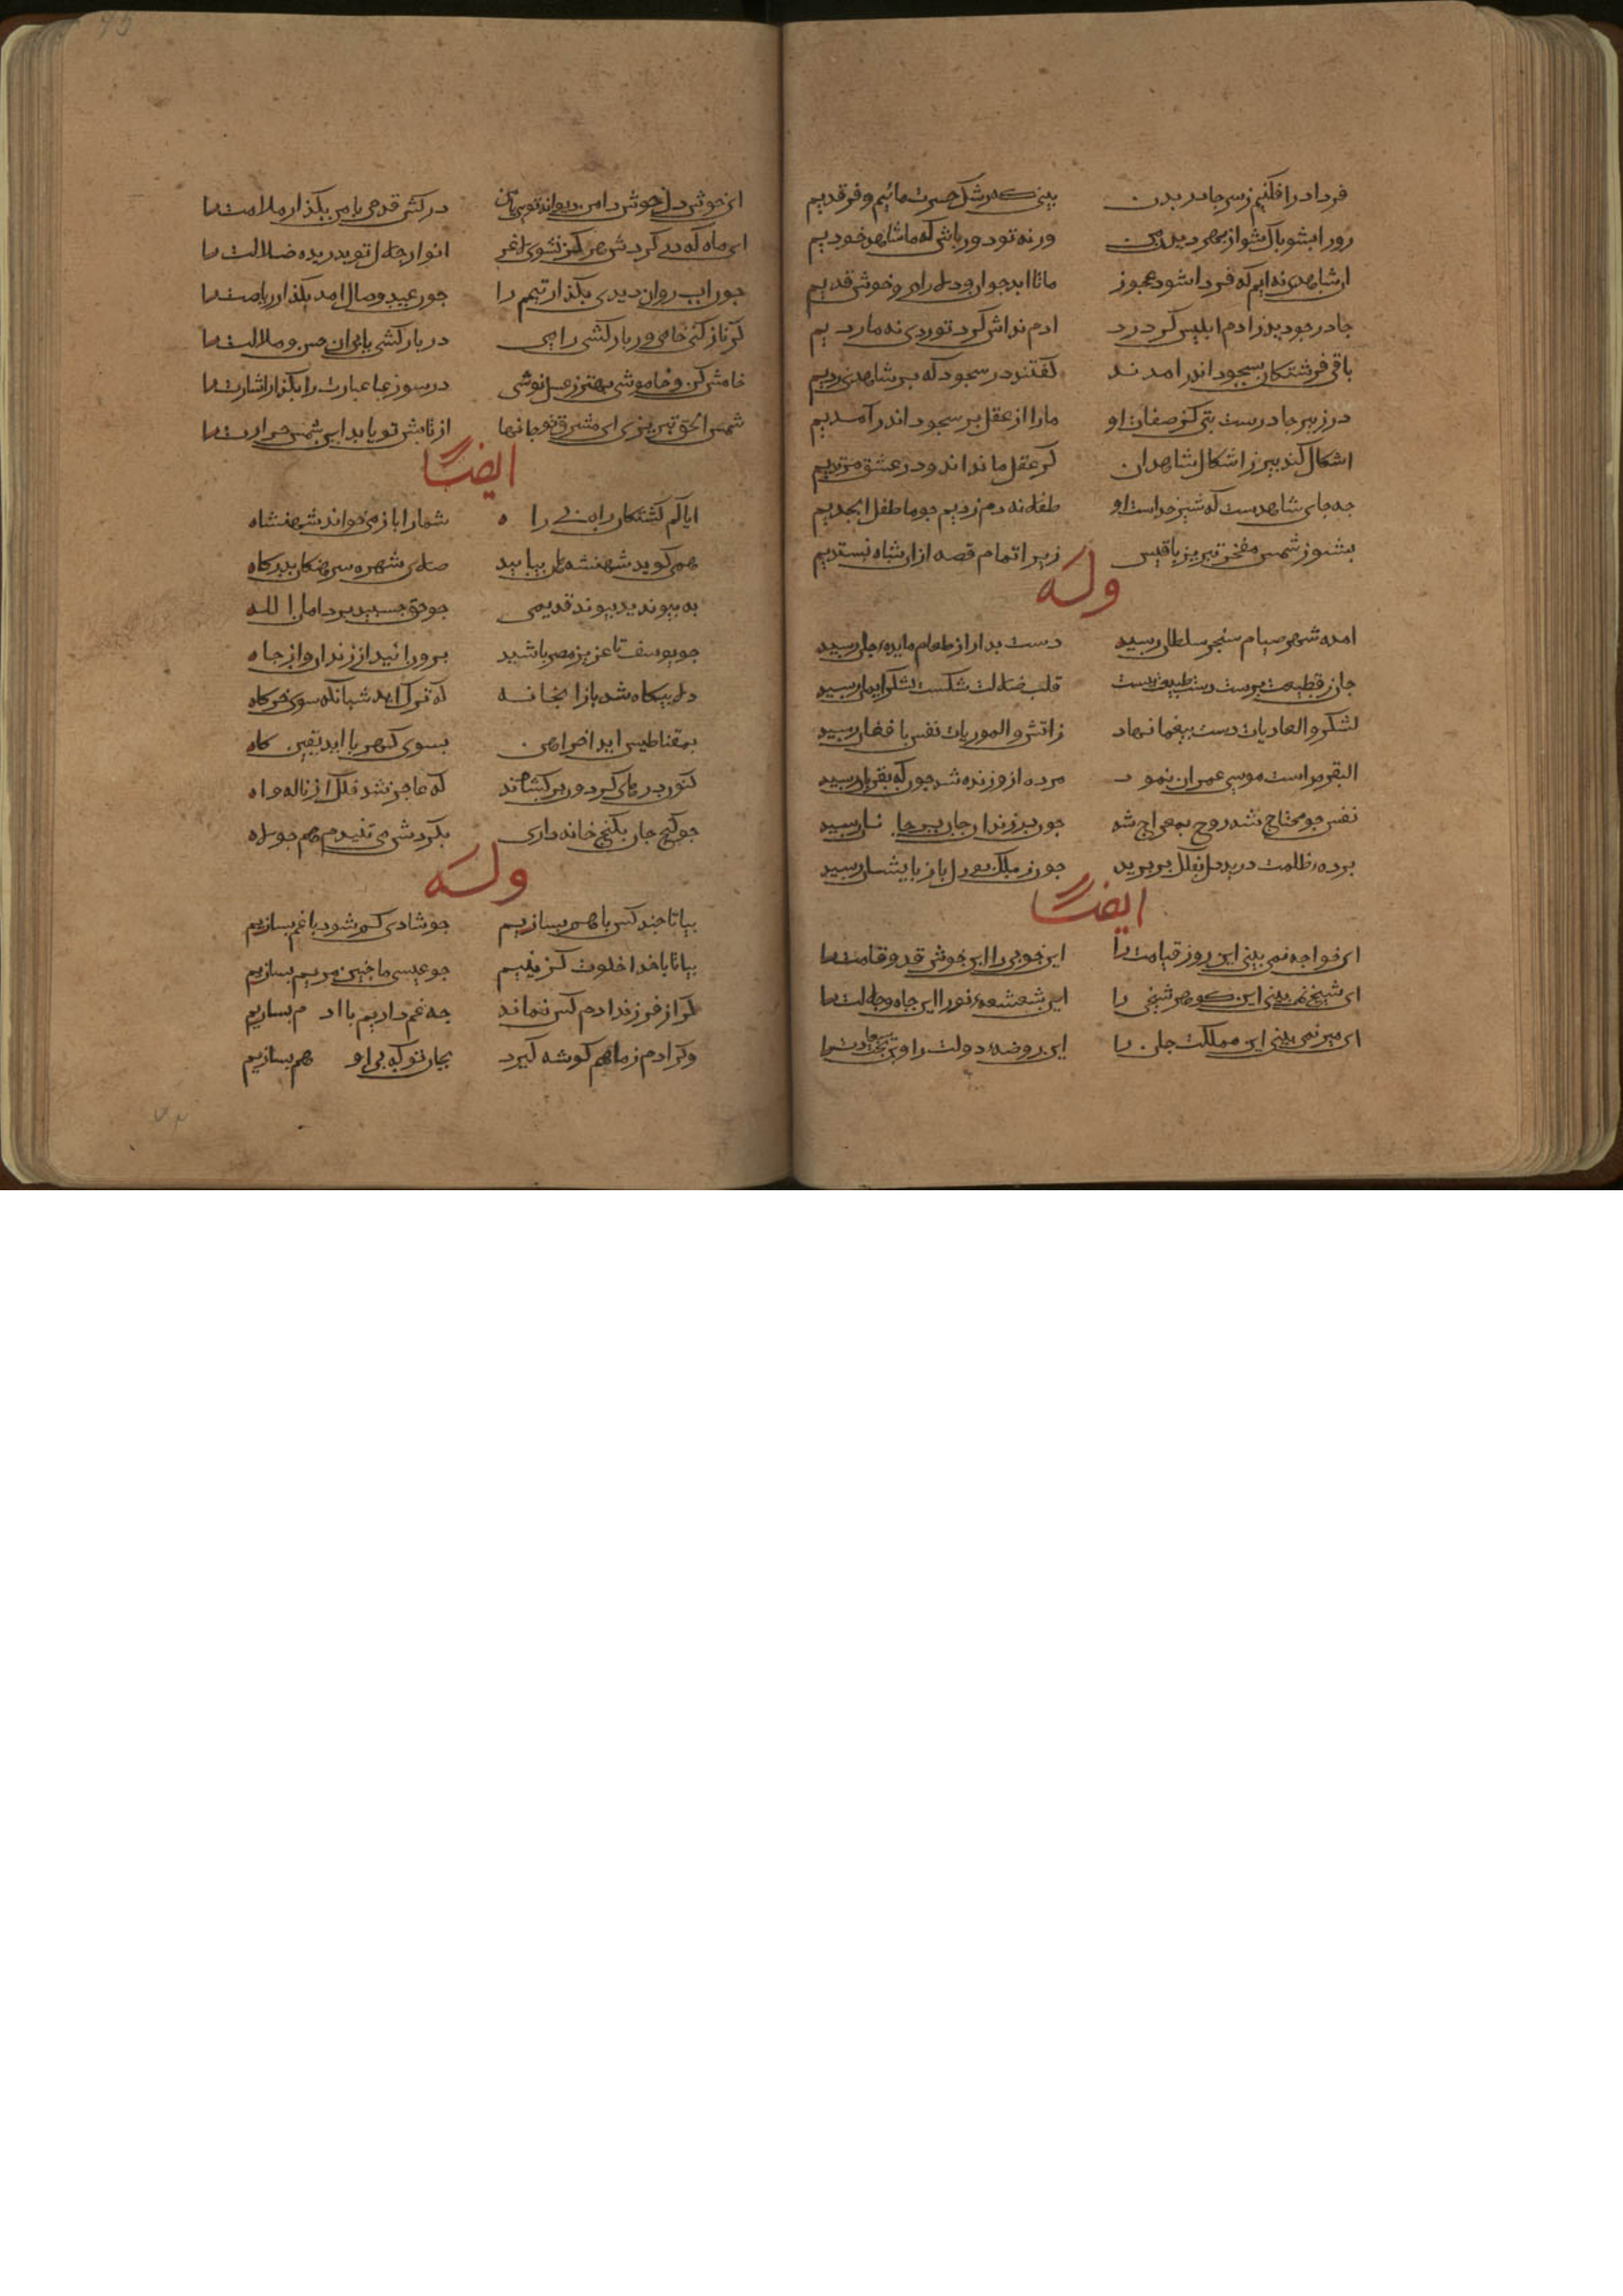 فردا در افکنیم ز سر جادر بدن بینی که رشک حسرت مائیم و فرقدیم
رو را بشو باک شو از بهر دیدن ور نه تو دور باش که ما شاهد خودیم
ان شاهدی نه ایم که فردا شود عجوز ما تا ابد جوان و دلارام و خوش قدیم
جادر جو دید ز ادم ابلیس کرد رد ادم نداش کرد تو ردی نه ما ردیم
باقی فرشتکان بسجود اندر امدند کفتند در سجود که بر شاهدی زدیم
در زیر جادرست بتی کز صفات او ما را از عقل برد سجود اندر آمدیم
اشکال کنده بیر ز اشکال شاهدان کر عقل ما نداند در عشق مرتدیم
جه جای شاهدست که شیر خداست او طفلانه دم زدیم جو ما طفل ابجدیم
بشنو ز شمس مفخر تبریز باقیش زیرا تمام قصه از ان شاه نستدیم
وله
امده شهر صیام سنجق سلطان رسید دست بدار از طعام مایده جان رسید
جان ز قطیعت برست دست طبیعت ببست قلب ضلالت شکست لشکر ایمان رسید
لشکر والعادیات دست بیغما نهاد ز اتش والموریات نفس بافغان رسید
البقره راست موسی عمران نمود مرده ازو زنده شد جون که بقربان رسید
نفس جو محتاج شد روح بمعراج شد جون در زندان جان بر جانان رسید
برده ظلمت درید دل بفلک بر برید جون ز ملک بود دل باز بایشان رسید
ایضا
ای خواجه نمی بینی این روز قیامت را این خوبی را این خوش قد و قامت را
ای شیخ نمی بینی این کوهر شیخی را این شعشعه نو را این جاه و جلالت را
ای میر نمی بینی این مملکت جان را این روضه دولت را وین بخت سعادت را
ای خوش دل خوش دامن دیوانه توی یا من درکش قدحی با من بکذار ملامت را
ای ماه که در کردش هرکز نشوی لاغر انوار جلال تو بدریده ضلالت را
جون اب روان دیدی بکذار تیمم را جون عید وصال امد بکذار ریاضت را
کر ناز کنی خامی ور نار کشی رامی در بارکشی یابی ان حسن و ملالت را
خامش کن و خاموشی بهتر ز عسل نوشی در سوز عبارت را بکذار اشارت را
شمس الحق تبریزی ای مشرق تو جانها از تابش تو یابد این شمس حرارت را
ایضا
ایا کم کشتکان راه را شما را باز می خواند شهنشاه
همی کوید شهنشه کان بیایید صلای شهره سرهنکان بدرکاه
به بیوندید بیوند قدیمی
جو یوسف تا عزیز مصر باشید برون ائید از زندان و از جاه
دلی بیکاه شد باز ا بخانه که ترک اید شبانکه سوی خرکاه
بمقناطیس اید اخر اهن بسوی کهربا اید یقین کاه
کنون درهای کردون بر کشاند که عاجز شد فلک از ناله و اه
جو کنج جان بکنج خانه داری بکردش می تنیدم هم جو لاه
وله
بیا تا جند کس با هم بسازیم جو شادی کم شود با غم بسازیم
بیا تا با خدا خلوت کزینیم جو عیسی ما جنین مریم بسازیم
کر از فرزند ادم کس نماند جه غم داریم با ادم بسازیم
وکر ادم ز ما هم کوشه کیرد بجان تو که بی او هم بسازیم